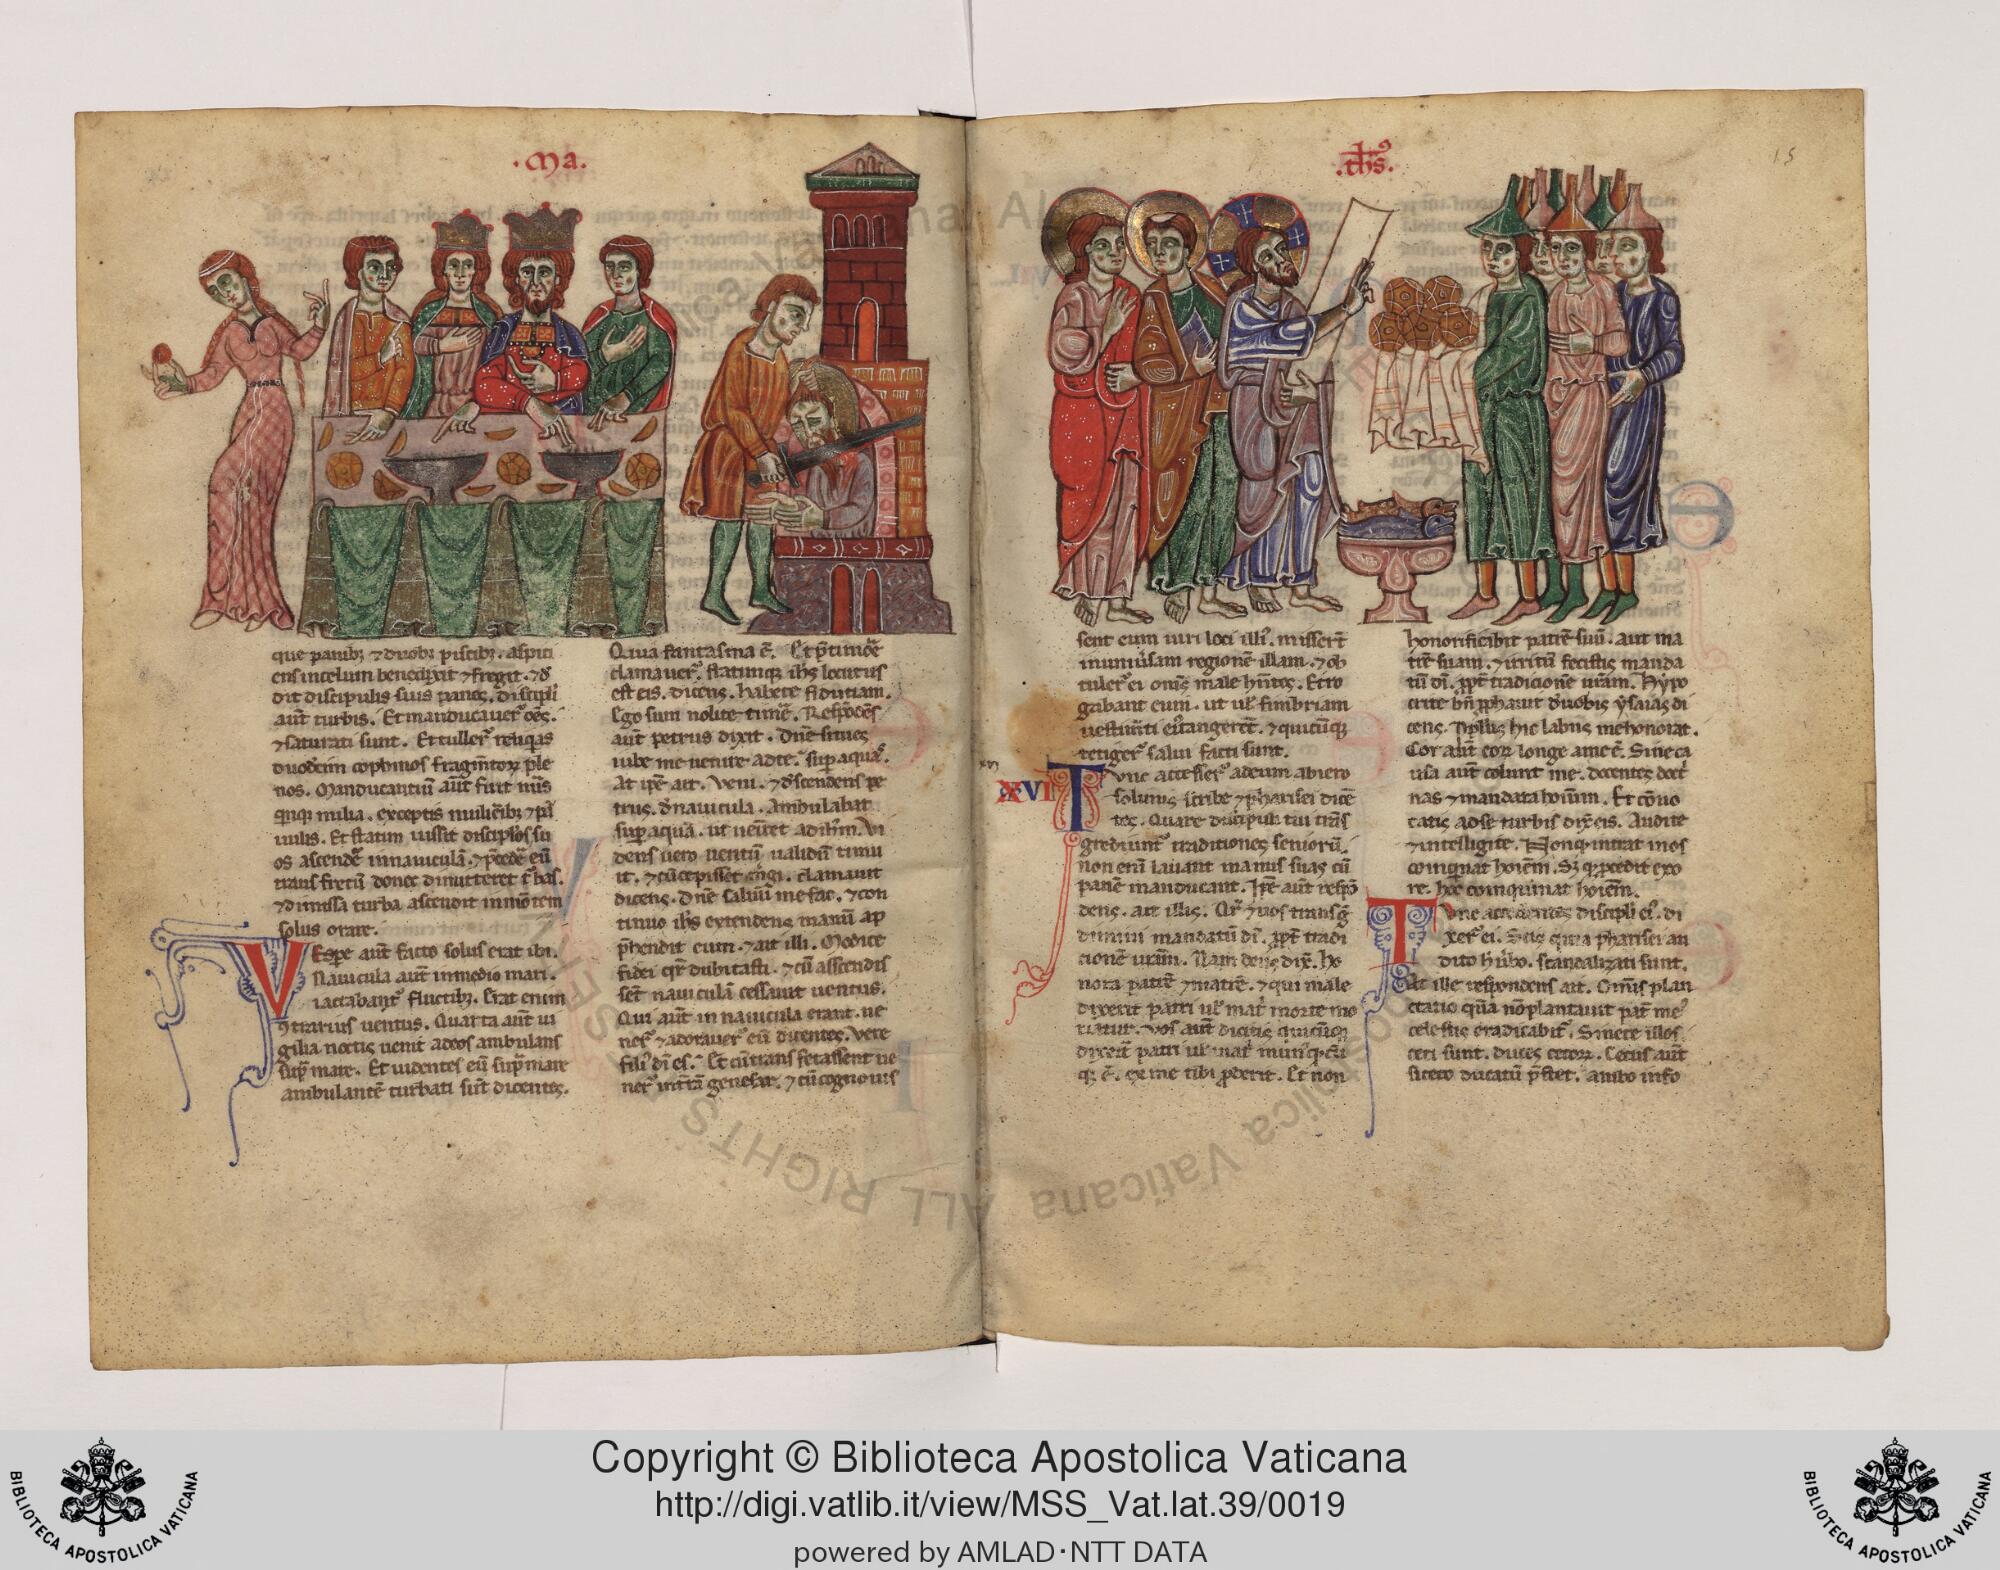 ·Ma·
que panibꝫ ⁊ duobꝫ piscibꝫ. aspici
ens in celum benedixit ⁊ fregit. ⁊ de
dit discipulis suis panes. discipli
aut̄ turbis. Et manducauer̄ oēs.
⁊ saturati sunt. Et tuller̄ reliquias
duodecim cophinos fragmtoꝝ ple
nos. Manducantiū aut̄ fuit num̄s
quinqꝫ milia. exceptis mulieribꝫ ⁊ p̄
uulis. Et statim iussit disciplos su
os ascende in nauiculā. ⁊ p̄cedē eū
trans fretū donec dimitteret t̄bas.
⁊ dimissa turba ascendit in mōtem
solus orare.
Vespe aut̄ facto solus erat ibi.
Nauicula aut̄ in medio mari.
iactabant᷑ fluctibꝫ. Erat enim
ꝯtrarius uentus. Quarta aut̄ ui
gilia noctis uenit ad eos ambulans
sup̄ mare. Et uidentes eū sup̄ mare
ambulantē turbati sūt dicentes.
Quia fantasma ē. Et p̄ timorē
clamauer̄. statimqꝫ ihs locutus
est eis. dicens. habete fidutiam.
Ego sum nolite timē. Respōdēs
aut̄ petrus dixit. Dn̄e si tu es
iube me uenire ad te. sup aquas.
At ip̄e ait. Veni. ⁊ descendens pe
trus. d̄ nauicula. ambulabat
sup aquā. ut ueniret ad ihm. Vi
dens uero uentū ualidū timu
it. ⁊ cū cepisset mgi. clamauit
dicens. Dn̄e saluū me fac. ⁊ con
tinuo ihs extendens manū ap
p̄hendit eum. ⁊ ait illi. Modice
fidei qr̄ dubitasti. ⁊ cū ascendis
sēt nauiculā cessauit uentus.
Qui aut̄ in nauicula erant. ue
ner̄ ⁊ adorauer̄ eū dicentes. Vere
fili᷒ dī es. Et cū trans fetassent ue
ner̄ in trā genesar. ⁊ cū cognouis
·ths᷒·
15
sent eum uiri loci illi᷒. misser̄t
in uniūsam regionē illam. ⁊ ob
tuler̄ ei omīs male hn̄tes. Et ro
gabant eum. ut ul̄ fimbriam
uestimti ei᷒ tangerēt. ⁊ quicūqꝫ
tetiger̄ salui facti sunt.
XVI
Tunc accesser̄ ad eum ab iero
solimis scribe ⁊ pharisei dicē
tes. Quare discipuli tui trās
grediunt᷑ traditiones seniorū.
non enī lauant manus suas cū
panē manducant. Ip̄e aut̄ respō
dens. ait illis. Qr̄ ⁊ uos transg̃
dimini mandatū dī. ꝓpt̄ tradi
tionē ur̄am. Nam deus dix̄. ho
nora patrē ⁊ matrē. ⁊ qui male
dixerit patri ul̄ matri morte mo
riatur. Vos aut̄ dicitis quicūqꝫ
dixerit patri ul̄ matri mun᷒ qꝫ cū
qꝫ ē. ex me tibi ꝓderit. Et non
honorificabit patrē suū. aut ma
trē suam. ⁊ irritū fecistis manda
tū dī. ꝓpt̄ tradicionē ur̄am. Hypo
crite bn̄ ꝓphauit d̄ uobis ysaias di
cens. Ppls᷒ hic labiis me honorat.
Cor aut̄ eoꝝ longe a me ē. Sine ca
usa aut̄ colunt me. docentes doct̄
nas ⁊ mandata hoīum. Et cōuo
catis ad se turbis dix̄ eis. Audite
⁊ intelligite. Non qꝫ intrat in os
coinquinat hoīem. Sꝫ qꝫ ꝓcedit ex o
re. hoc coinquinat hoīem.
Tunc accedentes discipli ei᷒. di
xer̄ ei. Scis quia pharisei au
dito hͦ ubo. scandalizati sunt.
At ille respondens ait. Omīs plan
ctatio quā nō plantauit pat̄ me᷒
celestis eradicabit᷑. Sinete illos.
ceci sunt. duces cecoꝝ. Cecus aut̄
si ceco ducatū p̄stet. ambo in fo
Copyright © Biblioteca Apostolica Vaticana
http://digi.vatlib.it/view/MSS_Vat.lat.39/0019
powered by AMLAD·NTT DATA
BIBLIOTECA APOSTOLICA VATICANA
BIBLIOTECA APOSTOLICA VATICANA